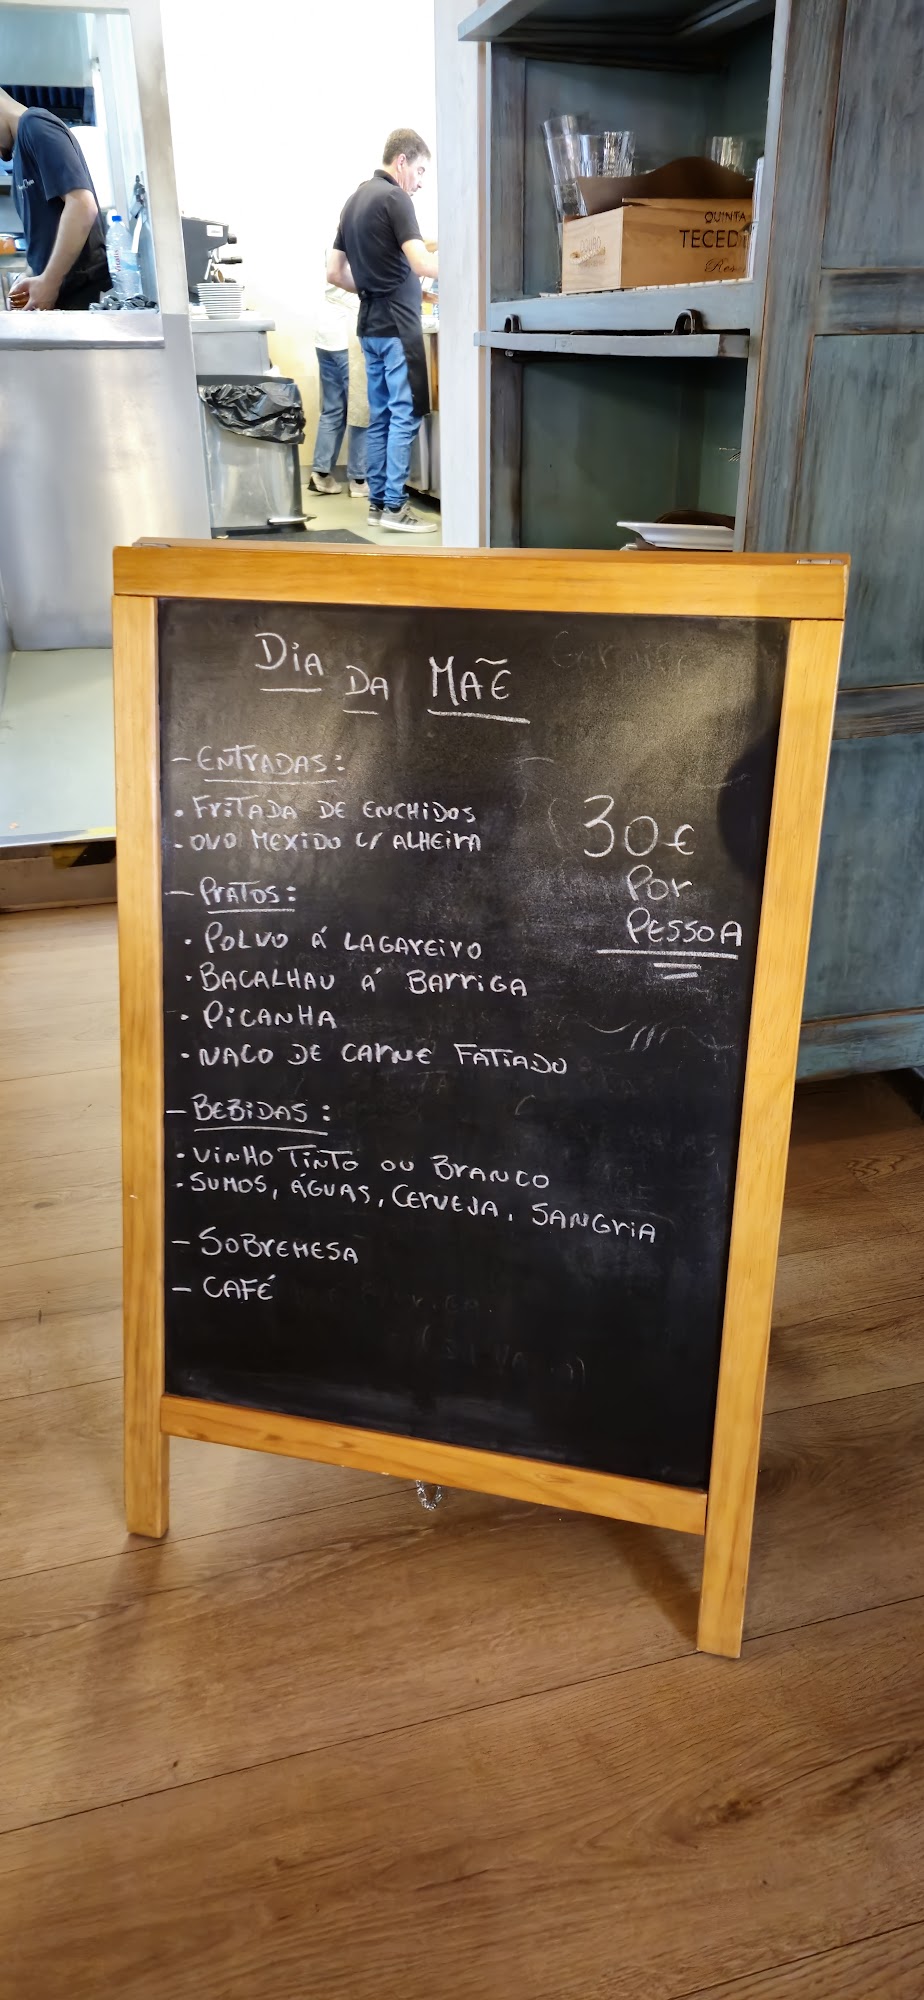 DIA DA MÃE
- ENTRADAS:
• FRITADA DE ENCHIDOS
• OVO MEXIDO C/ ALHEIRA
30€
POR
PESSOA
- PRATOS:
• POLVO Á LAGAREIRO
• BACALHAU Á BARRIGA
• PICANHA
• NACO DE CARNE FATIADO
- BEBIDAS:
• VINHO TINTO OU BRANCO
• SUMOS, ÁGUAS, CERVEJA, SANGRIA
- SOBREMESA
- CAFÉ
QUINTA
DOURO